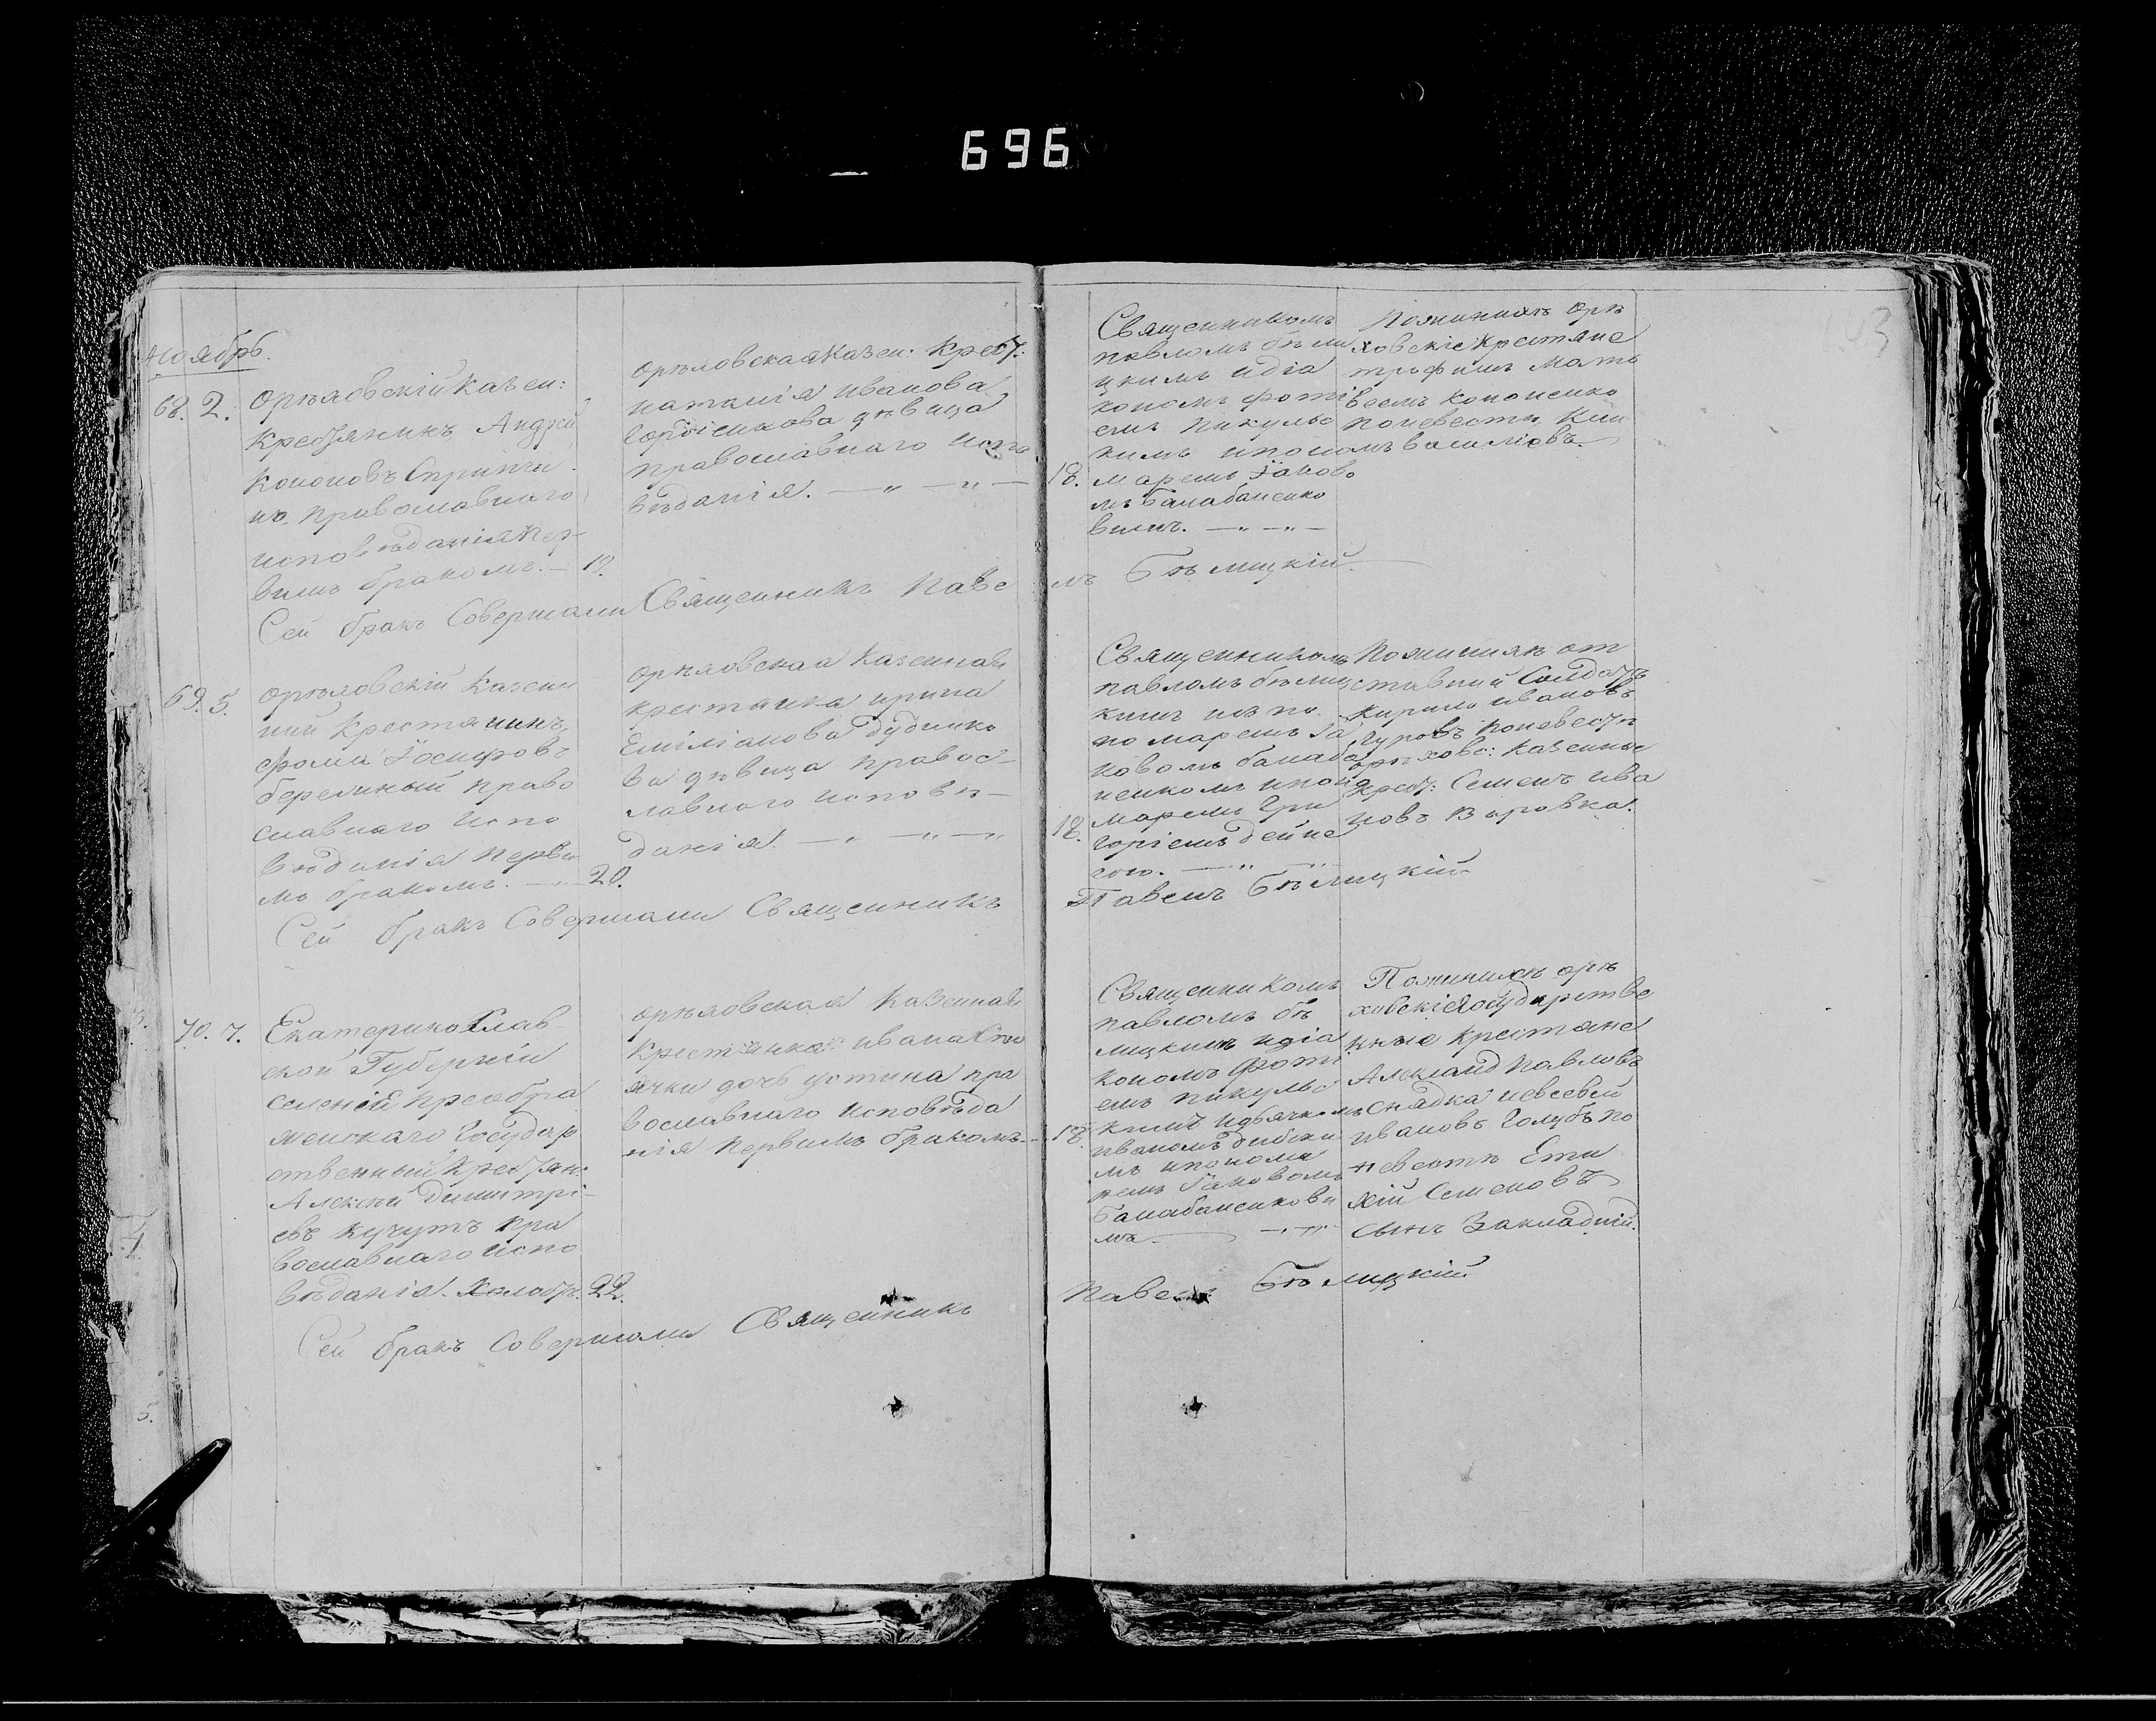 696
53
Ноябрь.
68. 2. Орѣховскій казен:
крестьянинъ Андрей
Кононовъ
православнаго
исповѣданія пер-
вымъ бракомъ. — 19.
Орѣховская казен: крест:
наталія иванова
Гордіенкова дѣвица
православнаго испо
вѣданія. — „ — „ —
18.
Священникомъ
павломъ бѣли
цкимъ и діа
кономъ фоті
емъ пикульс
кимъ и поно
маремъ Іаково
мъ Балабаненко
вымъ. — „ — „ —
По женихѣ орѣ
ховскіе крестяне
трофимъ мать
веевъ кононенко
по невестѣ
василіовъ.
Сей бракъ Совершали Священникъ Паве
лъ Бѣлицкій.
69. 5. Орѣховскій казен
ний крестянинъ
Фома Іосифовъ
православнаго испо
вѣданія первы
мъ бракомъ. — 20.
Орѣховская казенная
крестянка ирина
Еміліанова дуднико
ва дѣвица правос-
лавного исповѣ-
данія. — „ — „ — „
18.
Священникомъ
павломъ бѣлиц
кимъ и
пономаремъ Іа
ковомъ балаба
ненкомъ и поно
маремъ Гри
горіемъ дейне
гою. — „ — „
По женихѣ от
ставний Солдатъ
Кирило ивановъ
по невестѣ
орѣховс: казенные
крест: Семенъ ива
новъ
Сей бракъ Совершали Священникъ
Павелъ Бѣлицкій
70. 7. Екатеринослав
ской Губерніи
селенія преобра
женскаго Государ
ственный крестян:
Алексѣй димитрі-
евъ кучутъ пра
вославнаго испо
вѣданія. холост: 22.
Орѣховская казенная
крестянка ивана
дочь устина пра
вославнаго исповѣда
нія первымъ бракомъ —
18.
Священникомъ
павломъ бѣ
лицкимъ и діа
кономъ Фоті
емъ пикульс
кимъ и дьячкомъ
иваномъ
мъ и понома
ремъ Іаковомъ
Балабаненковы
мъ — „ — „
По женихѣ орѣ
ховскіе государстве
нные крестяне
Александ Павловъ
Снядка и евсевей
ивановъ Голубъ по
невестѣ
Семеновъ
сынъ Закладній.
Сей бракъ Совершали Священникъ
Павелъ Бѣлицкій